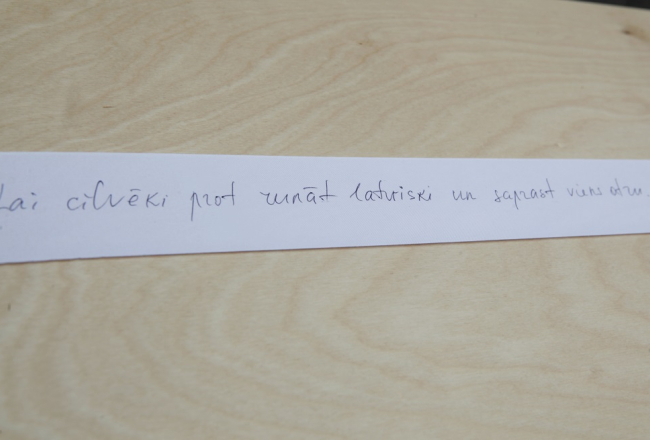 Lai cilvēki prot runāt latviski un saprast viens otru.